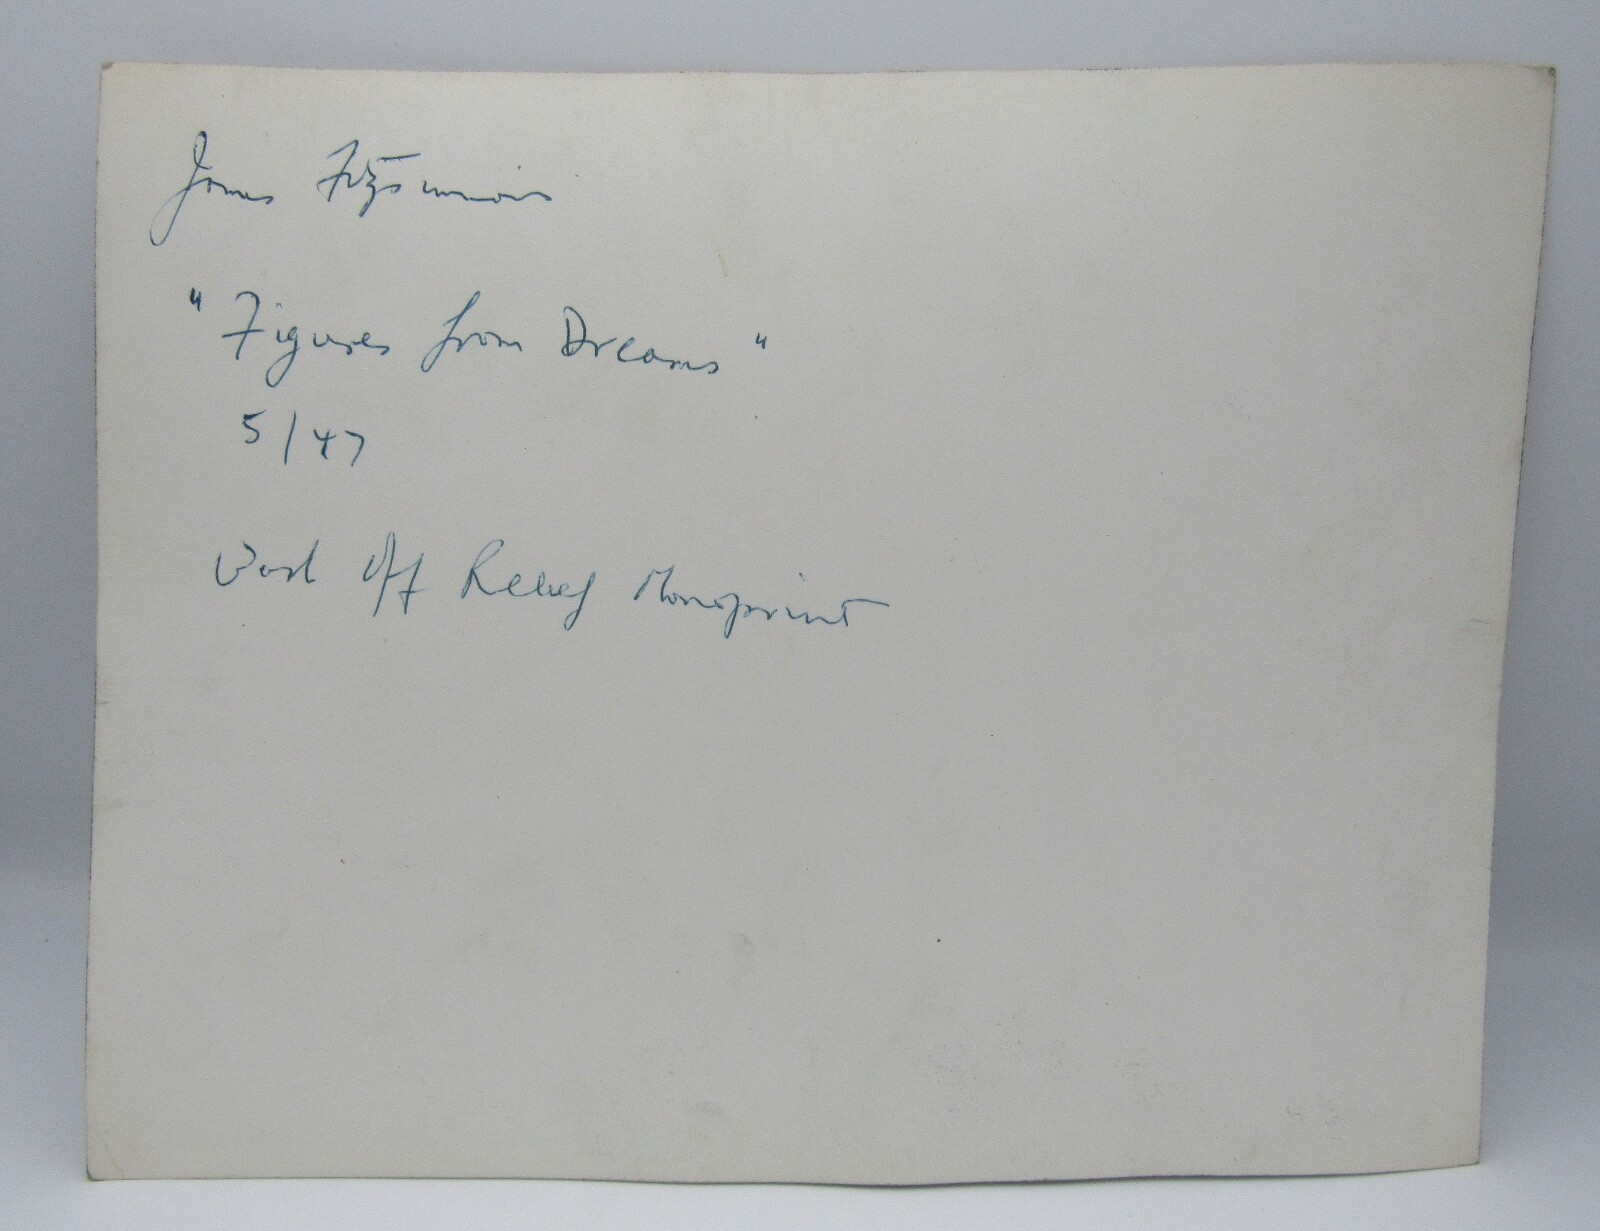 James Fitzsimmons
"Figures from Dreams"
5/47
Wash Off Relief Monoprint